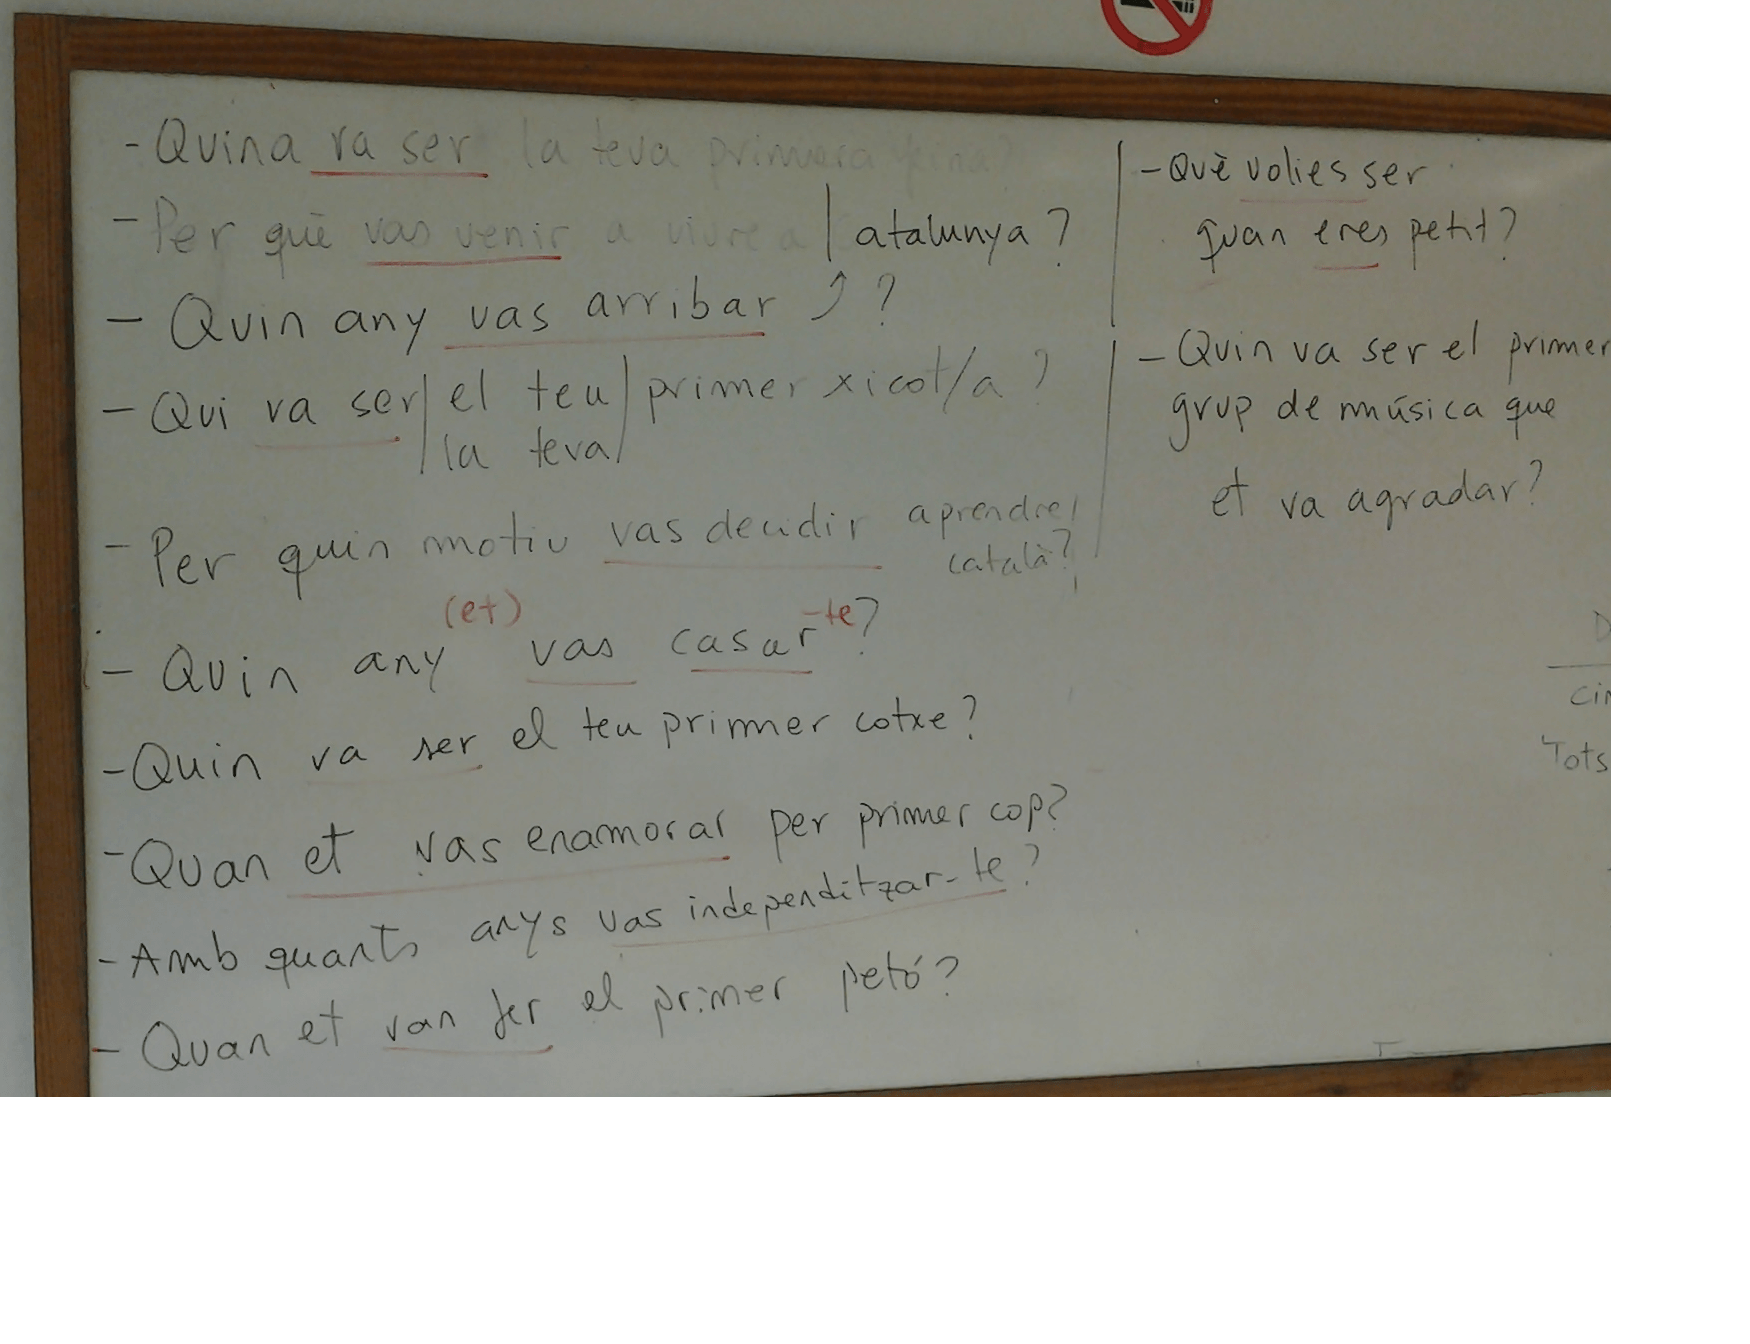 - Quina va ser la teva primera feina?
- Per què vas venir a viure a Catalunya?
- Quin any vas arribar ⤴ ?
- Qui va ser / el teu / primer xicot/a ?
la teva
- Per quin motiu vas decidir aprendre
català?
(et) -te
- Quin any vas casar ?
- Quin va ser el teu primer cotxe?
- Quan et vas enamorar per primer cop?
- Amb quants anys vas independitzar-te?
- Quan et van fer el primer petó?
- Què volies ser
quan eres petit?
- Quin va ser el primer
grup de música que
et va agradar?
Tots